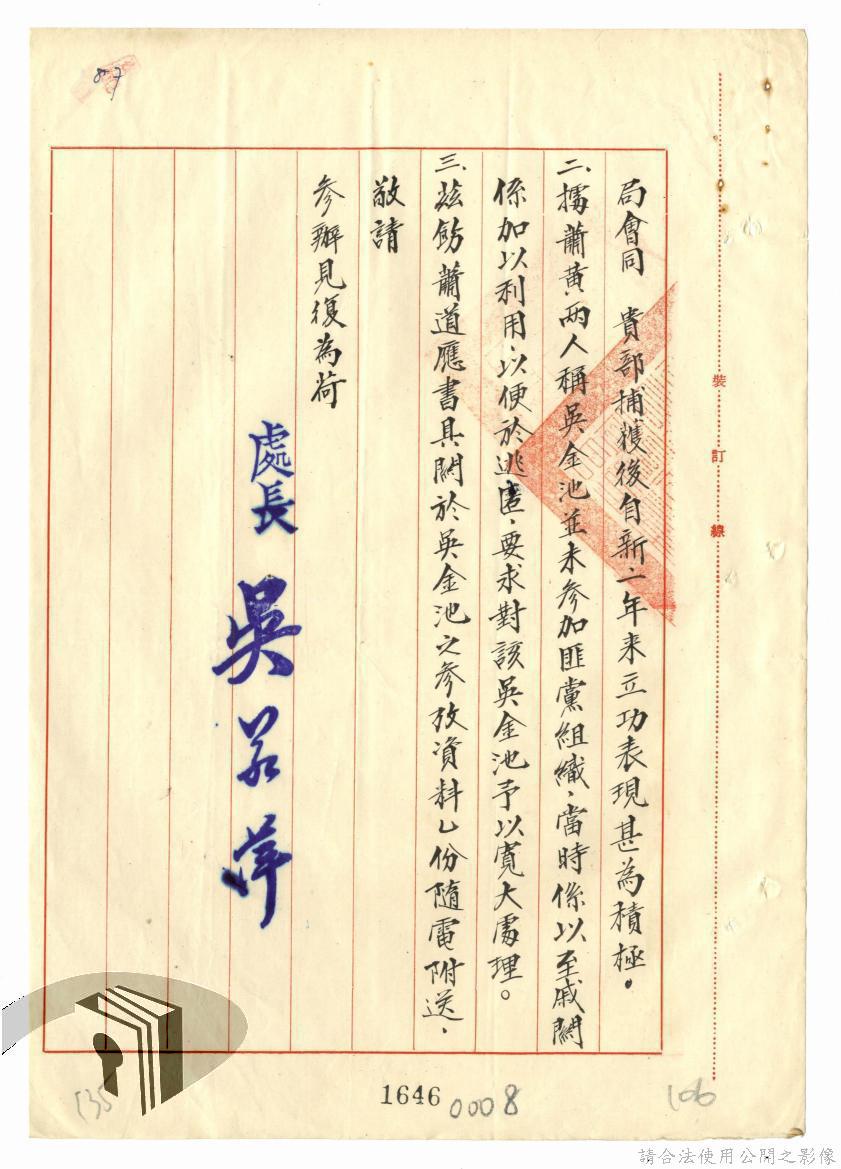 局會同　貴部捕獲後自新二年来立功表現甚為積極。
二、據蕭黃两人稱吳金池並未參加匪黨組織、當時係以至戚關
係加以利用、以便於逃匿、要求對該吳金池予以寬大處理。
三、茲飭蕭道應書具關於吳金池之參攷資料乙份隨電附送、
敬請
參辦見復為荷
處長 吳
裝訂線
1646
0008
106
135
請合法使用公開之影像